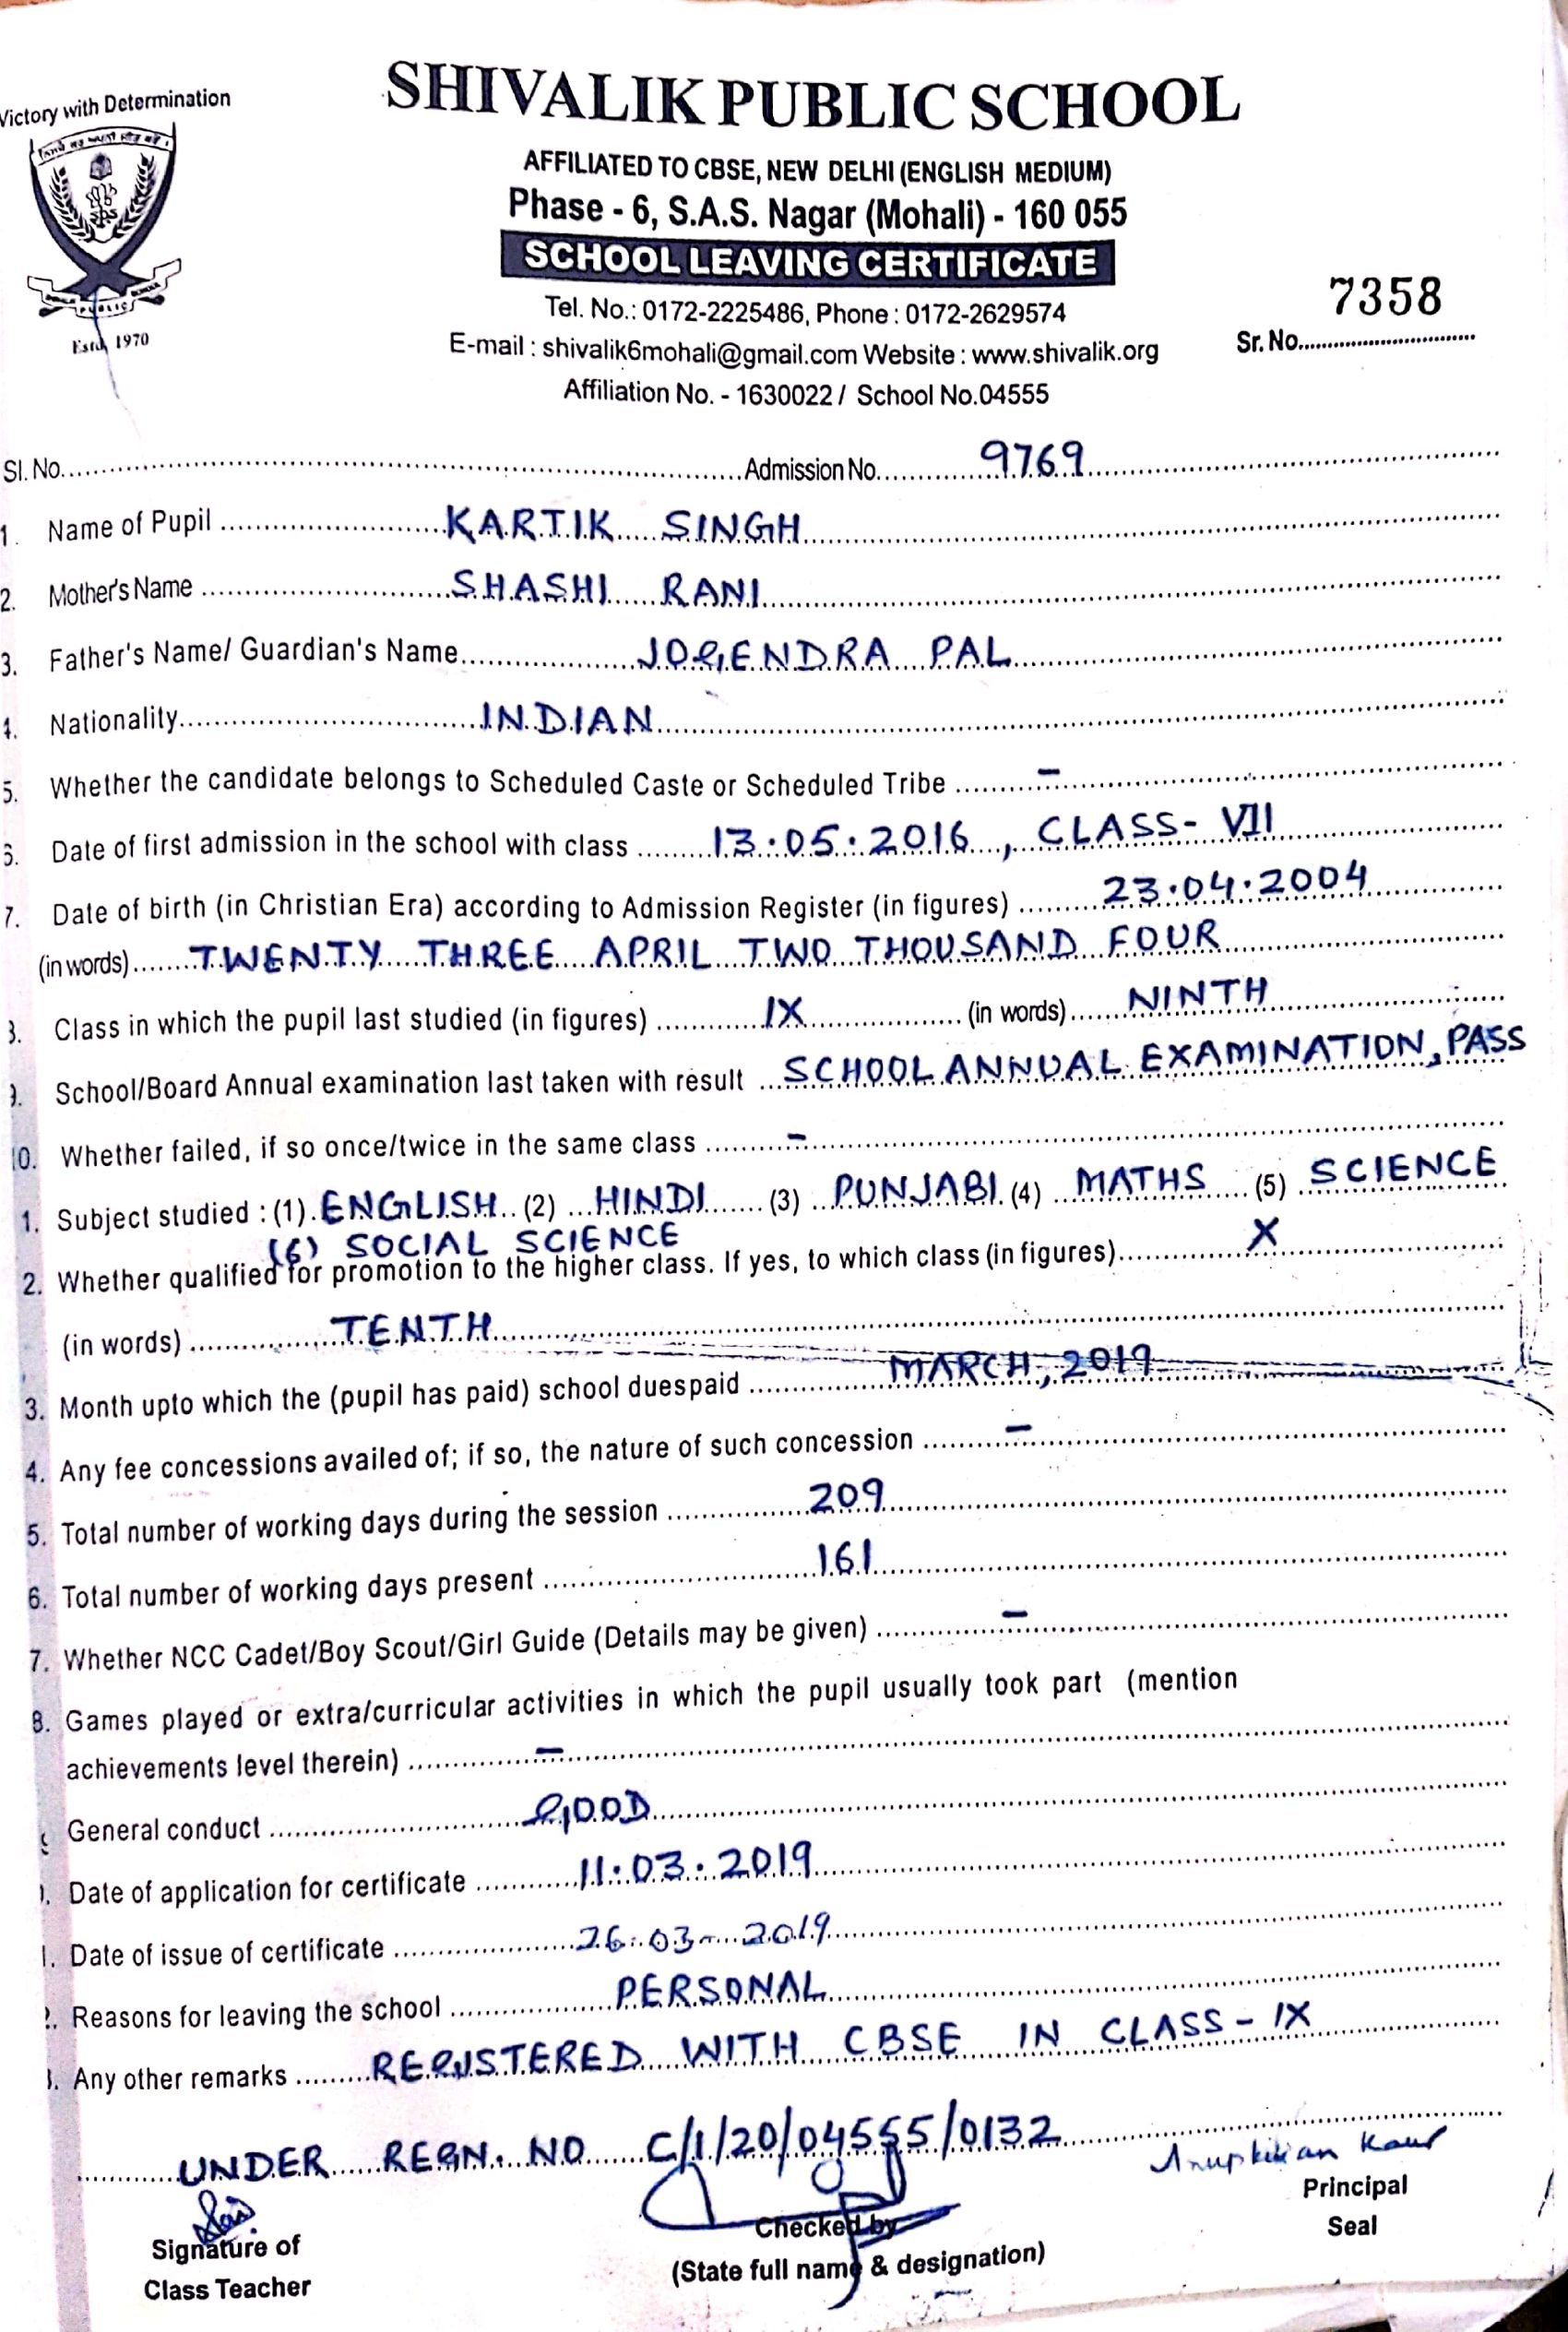 Victory with Determination
SHIVALIK PUBLIC SCHOOL
AFFILIATED TO CBSE, NEW DELHI (ENGLISH MEDIUM)
Phase - 6, S.A.S. Nagar (Mohali) - 160 055
SCHOOL LEAVING CERTIFICATE
Tel. No.: 0172-2225486, Phone : 0172-2629574
E-mail : shivalik6mohali@gmail.com Website : www.shivalik.org
Affiliation No. - 1630022 / School No.04555
SPS
PUBLIC SCHOOL
Estd. 1970
7358
Sr. No.
Sl. No. Admission No. 9769
1. Name of Pupil KARTIK SINGH
2. Mother's Name SHASHI RANI
3. Father's Name/ Guardian's Name JOGENDRA PAL
4. Nationality INDIAN
5. Whether the candidate belongs to Scheduled Caste or Scheduled Tribe –
6. Date of first admission in the school with class 13.05.2016, CLASS- VII
7. Date of birth (in Christian Era) according to Admission Register (in figures) 23.04.2004
(in words) TWENTY THREE APRIL TWO THOUSAND FOUR
8. Class in which the pupil last studied (in figures) IX (in words) NINTH
9. School/Board Annual examination last taken with result SCHOOL ANNUAL EXAMINATION, PASS
10. Whether failed, if so once/twice in the same class –
1. Subject studied : (1) ENGLISH (2) HINDI (3) PUNJABI (4) MATHS (5) SCIENCE
(6) SOCIAL SCIENCE
2. Whether qualified for promotion to the higher class. If yes, to which class (in figures) X
(in words) TENTH
3. Month upto which the (pupil has paid) school duespaid MARCH, 2019
4. Any fee concessions availed of; if so, the nature of such concession –
5. Total number of working days during the session 209
6. Total number of working days present 161
7. Whether NCC Cadet/Boy Scout/Girl Guide (Details may be given) –
8. Games played or extra/curricular activities in which the pupil usually took part (mention
achievements level therein) –
9 General conduct GOOD
). Date of application for certificate 11.03.2019
1. Date of issue of certificate 26-03-2019
2. Reasons for leaving the school PERSONAL
3. Any other remarks REGISTERED WITH CBSE IN CLASS - IX
UNDER REGN. NO C/1/20/04555/0132
Anupkiran Kaur
Principal
Seal
Signature of
Class Teacher
Checked by
(State full name & designation)